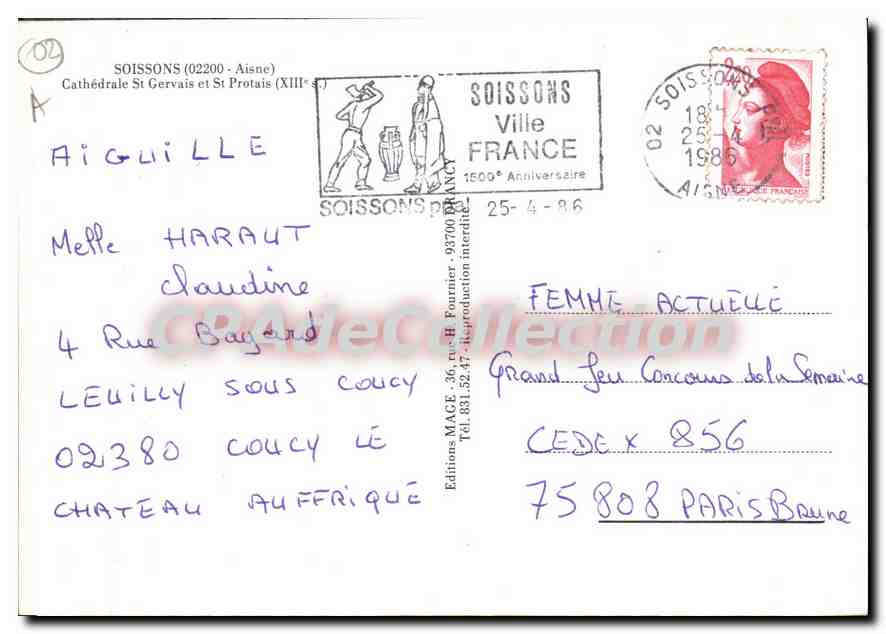 02
A
SOISSONS (02200 - Aisne)
Cathédrale St Gervais et St Protais (XIIIe s.)
AIGUILLE
Melle HARAUT
Claudine
4 Rue Bayard
LEUILLY SOUS COUCY
02380 COUCY LE
CHATEAU AUFFRIQUE
SOISSONS
Ville
FRANCE
1500e Anniversaire
SOISSONS ppal 25-4-86
02 SOISSONS PPAL
18H
25-4
1986
AISNE
2,20
POSTES
REPUBLIQUE FRANÇAISE
Editions MAGE - 36, rue H. Fournier - 93700 DRANCY
Tél. 831.52.47 - Reproduction interdite
FEMME ACTUELLE
Grand Jeu Concours de la Semaine
CEDEX 856
75808 PARIS Brune
CPAdeCollection